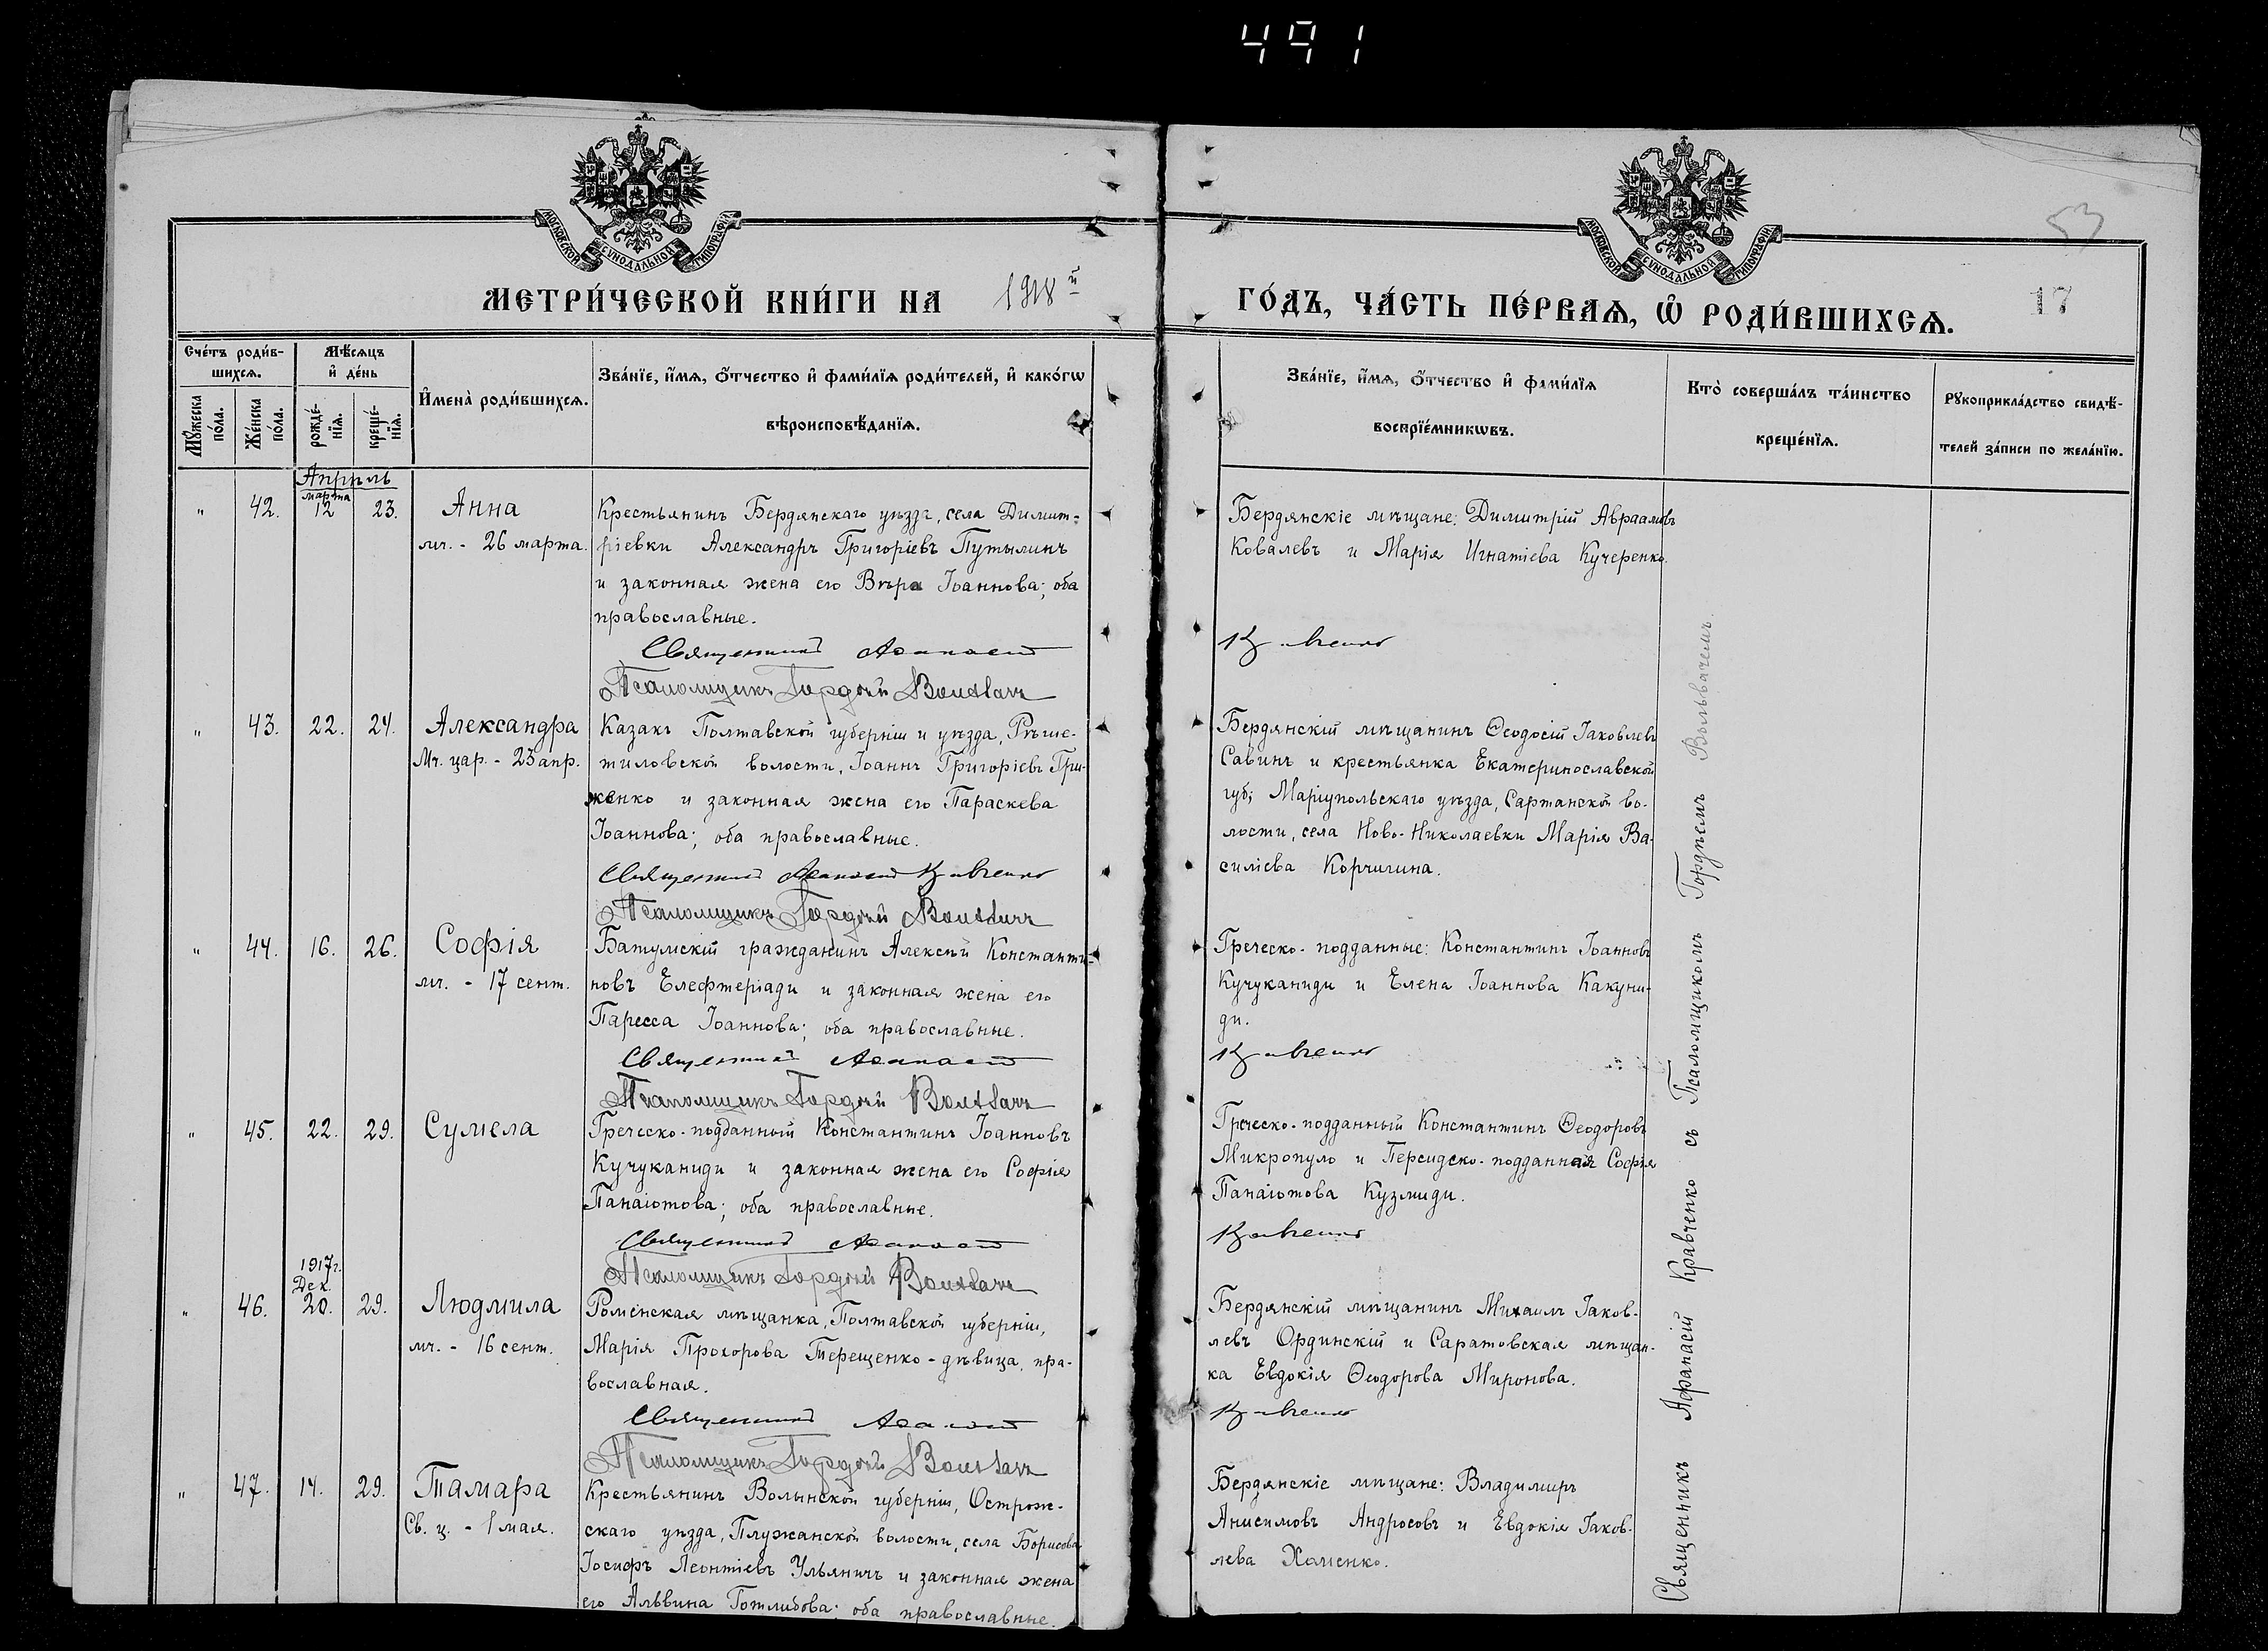 491
МОСКОВСКОЙ СѴНОДАЛЬНОЙ ТИПОГРАФІИ
МОСКОВСКОЙ СѴНОДАЛЬНОЙ ТИПОГРАФІИ
53
17
МЕТРИ́ЧЕСКОЙ КНИ́ГИ НА 1918й
ГО́ДЪ, ЧА́СТЬ ПЕ́РВАѦ, Ѡ҆ РОДИ́ВШИХСѦ.
Сче́тъ роди́в-
шихсѧ.
Мѣ́сѧцъ
и҆ де́нь
Мꙋ́жеска
по́ла.
Же́нска
по́ла.
рожде́-
нїѧ.
креще́-
нїѧ.
И҆мена̀ роди́вшихсѧ.
Зва́нїе, и҆́мѧ, ѻ҆́тчество и҆ фами́лїѧ роди́телей, и҆ како́гѡ
вѣроисповѣ́данїѧ.
Зва́нїе, и҆́мѧ, ѻ҆́тчество и҆ фами́лїѧ
воспрїе́мникѡвъ.
Кто̀ соверша́лъ та́инство
креще́нїѧ.
Рꙋкоприкла́дство свидѣ́-
телей за́писи по жела́нїю.
Апрѣль
марта
" 42. 12 23. Анна
мч. - 26 марта.
Крестьянинъ Бердянскаго уѣзда, села Димит-
ріевки Александръ Григоріевъ Путылинъ
и законная жена его Вѣра Іоаннова; оба
православные.
Священникъ Аѳанасій
Псаломщикъ Гордѣй Вольвачъ
Бердянскіе мѣщане: Димитрій Авраамовъ
Ковалевъ и Марія Игнатіева Кучеренко.
Кравченко
" 43. 22. 24. Александра
Мч. цар. - 23 апр.
Казакъ Полтавской губерніи и уѣзда, Рѣше-
тиловской волости, Іоаннъ Григоріевъ Гри-
женко и законная жена его Параскева
Іоаннова; оба православные.
Священникъ Аѳанасій Кравченко
Псаломщикъ Гордѣй Вольвачъ
Бердянскій мѣщанинъ Ѳеодосій Іаковлевъ
Савинъ и крестьянка Екатеринославской
губ; Маріупольскаго уѣзда, Сартанской во-
лости, села Ново-Николаевки Марія Ва-
силіева Корчигина.
" 44. 16. 26. Софія
мч. - 17 сент.
Батумскій гражданинъ Алексѣй Константи-
новъ Елефтеріади и законная жена его
Паресса Іоаннова; оба православные.
Священникъ Аѳанасій
Псаломщикъ Гордѣй Вольвачъ
Греческо-подданные: Константинъ Іоанновъ
Кучуканиди и Елена Іоаннова Какуни-
ди.
Кравченко
" 45. 22. 29. Сумела
Греческо-подданный Константинъ Іоанновъ
Кучуканиди и законная жена его Софія
Панаіотова; оба православные.
Священникъ Аѳанасій
Псаломщикъ Гордѣй Вольвачъ
Греческо-подданный Константинъ Ѳеодоровъ
Микропуло и Персидско-подданная Софія
Панаіотова Кузмиди.
Кравченко
1917г.
Дек.
" 46. 20. 29. Людмила
мч. - 16 сент.
Роменская мѣщанка, Полтавской губерніи,
Марія Прохорова Терещенко-дѣвица, пра-
вославная.
Священникъ Аѳанасій
Псаломщикъ Гордѣй Вольвачъ
Бердянскій мѣщанинъ Михаилъ Іаков-
левъ Ординскій и Саратовская мѣщан-
ка Евдокія Ѳеодорова Миронова.
Кравченко
" 47. 14. 29. Тамара
Св. ц. - 1 мая.
Крестьянинъ Волынской губерніи, Острож-
скаго уѣзда, Плужанской волости, села Борисова
Іосифъ Леонтіевъ Ульяничъ и законная жена
его Альвина Готлибова; оба православные.
Бердянскіе мѣщане: Владимиръ
Анисимовъ Андросовъ и Евдокія Іаков-
лева Хоменко.
Священникъ Афанасій Кравченко съ Псаломщикомъ Гордѣемъ Вольвачемъ.